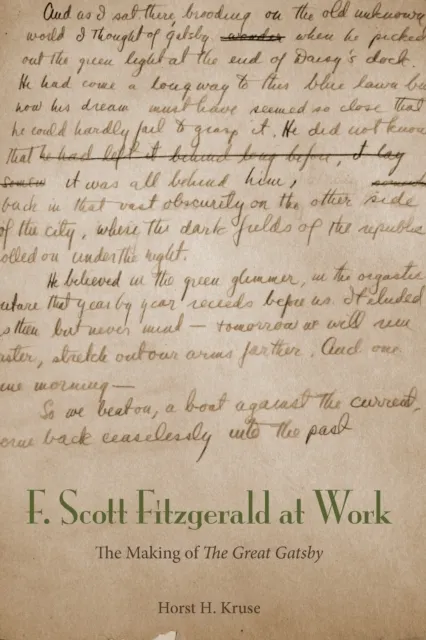 And as I sat there, brooding on the old unknown
world I thought of Gatsby wonder when he picked
out the green light at the end of Daisy's dock.
He had come a long way to this blue lawn bu
now his dream must have seemed so close that
he could hardly fail to grasp it. He did not know
that he had left it behind long before, I lay
it was all behind him,
back in that vast obscurity on the other side
of the city, where the dark fields of the republic
olled on under the night.
He believed in the green glimmer, in the orgastic
uture that year by year recedes before us. It eluded
s then but never mind — tomorrow we will run
aster, stretch out our arms farther. And one
ine morning—
So we beat on, a boat against the current,
orne back ceaselessly into the past
F. Scott Fitzgerald at Work
The Making of The Great Gatsby
Horst H. Kruse